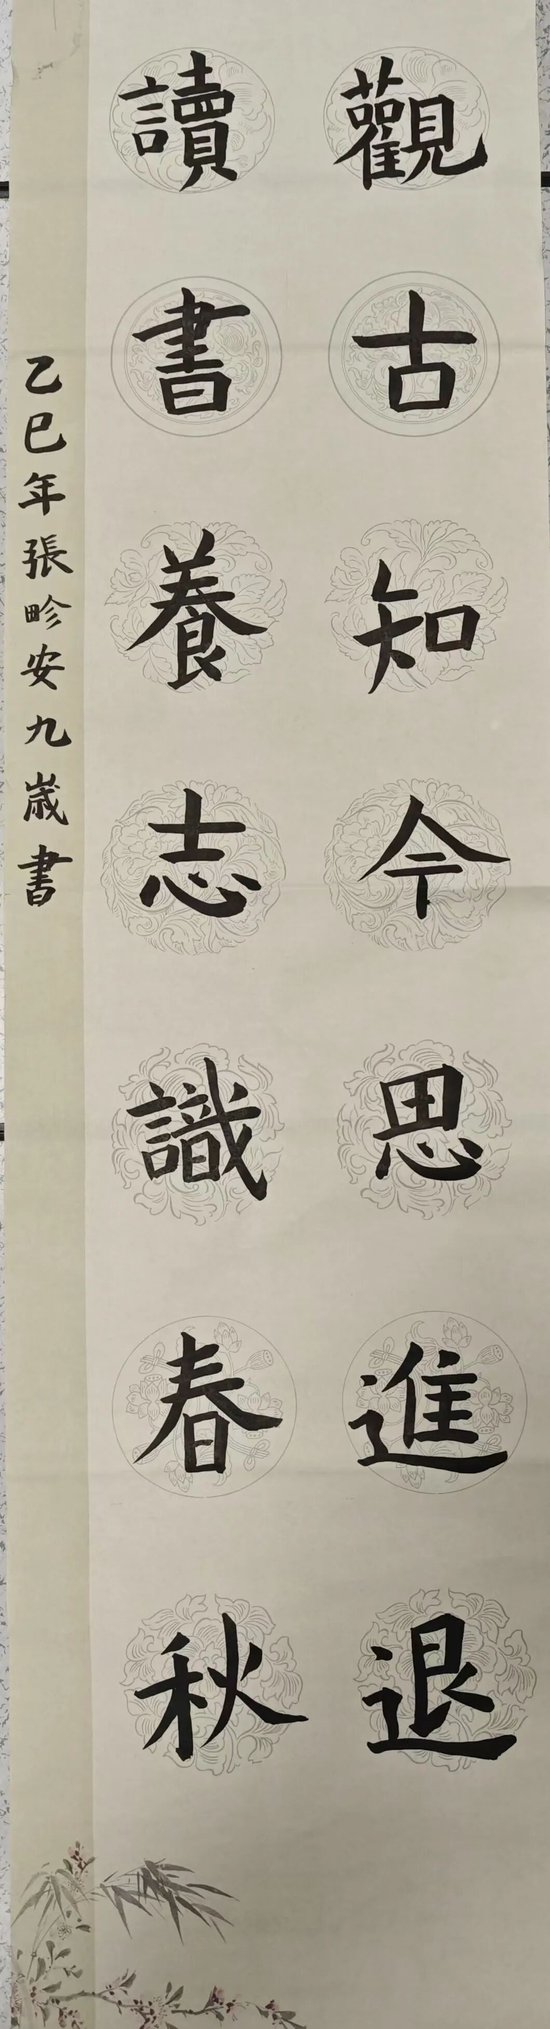 觀古知今思進退
讀書養志識春秋
乙巳年張畛安九歲書